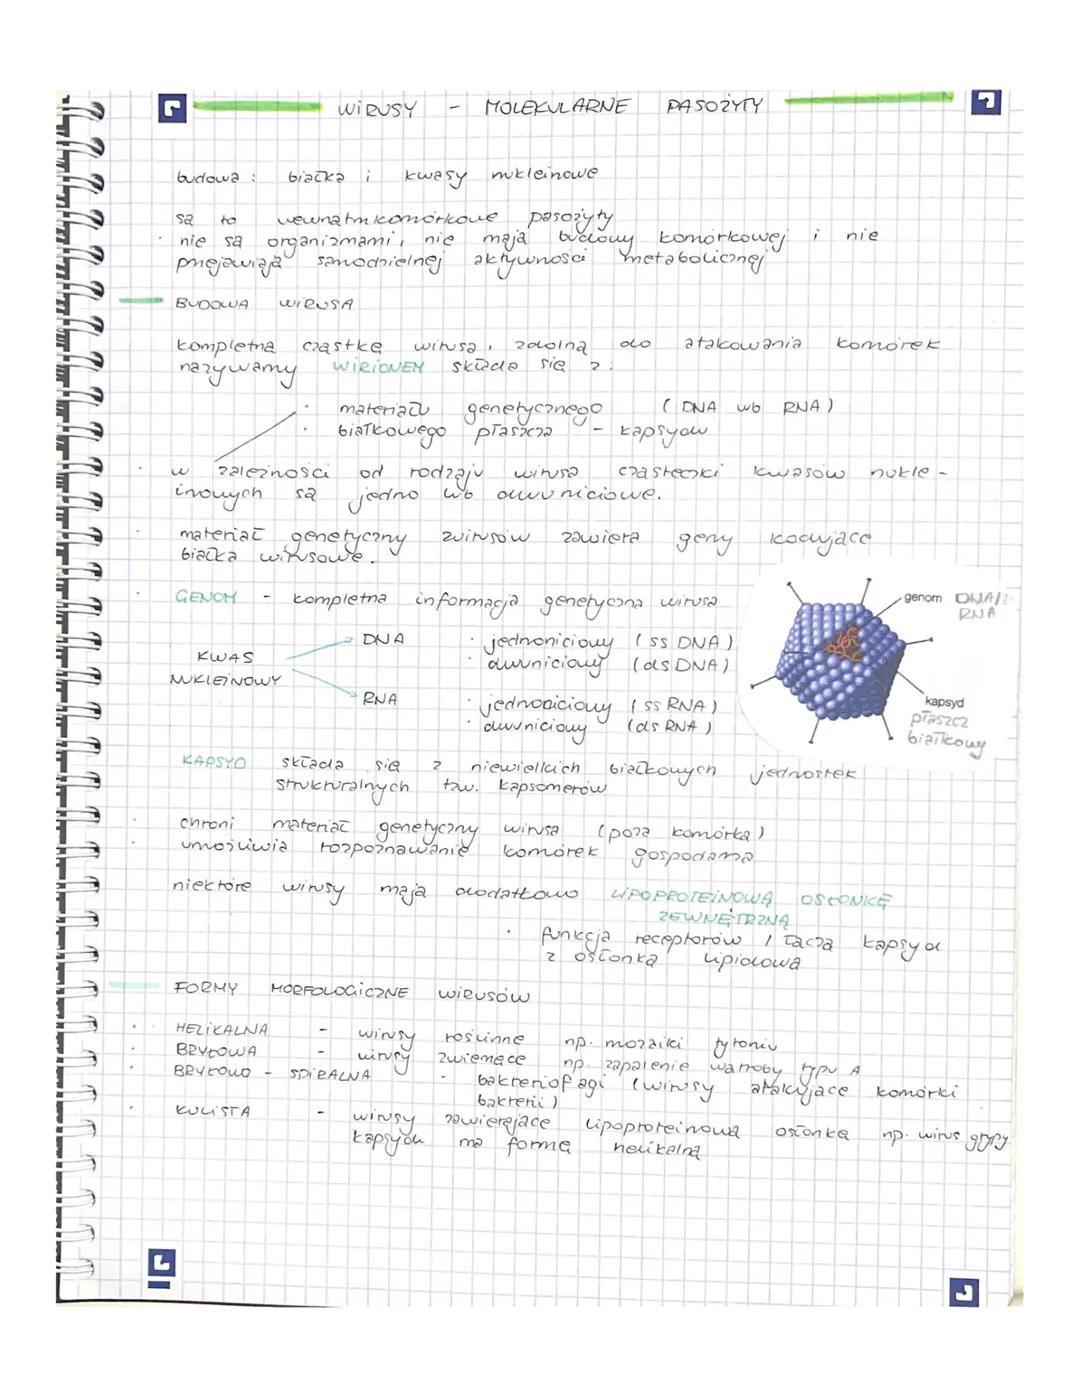 WIRUSY - MOLEKULARNE PASOŻYTY
budowa : białka i kwasy nukleinowe
są to wewnątrzkomórkowe pasożyty
· nie są organizmami, nie mają budowy komórkowej i nie
przejawiają samodzielnej aktywności metabolicznej
BUDOWA WIRUSA
kompletną cząstkę wirusa, zdolną do atakowania komórek
nazywamy WIRIONEM składa się z:
· materiału genetycznego (DNA lub RNA)
· białkowego płaszcza - kapsydu
· w zależności od rodzaju wirusa cząsteczki kwasów nukle-
inowych są jedno lub dwuniciowe.
· materiał genetyczny wirusów zawiera geny kodujące
białka wirusowe.
· GENOM - kompletna informacja genetyczna wirusa
KWAS NUKLEINOWY
DNA · jednoniciowy (ss DNA)
· dwuniciowy (ds DNA)
RNA · jednoniciowy (ss RNA)
· dwuniciowy (ds RNA)
genom DNA/
RNA
kapsyd
płaszcz
białkowy
· KAPSYD składa się z niewielkich białkowych jednostek
strukturalnych tzw. kapsomerów
· chroni materiał genetyczny wirusa (poza komórką)
· umożliwia rozpoznawanie komórek gospodarza
· niektóre wirusy mają dodatkowo LIPOPROTEINOWĄ OSŁONKĘ
ZEWNĘTRZNĄ
· funkcja receptorów / łączą kapsyd
z osłonką lipidową
FORMY MORFOLOGICZNE WIRUSÓW
· HELIKALNA - wirusy roślinne np. mozaiki tytoniu
· BRYŁOWA - wirusy zwierzęce np. zapalenie wątroby typu A
· BRYŁOWO - SPIRALNA - bakteriofagi (wirusy atakujące komórki
bakterii)
· KULISTA - wirusy zawierające lipoproteinową osłonkę np. wirus grypy
kapsyd ma formę helikalną